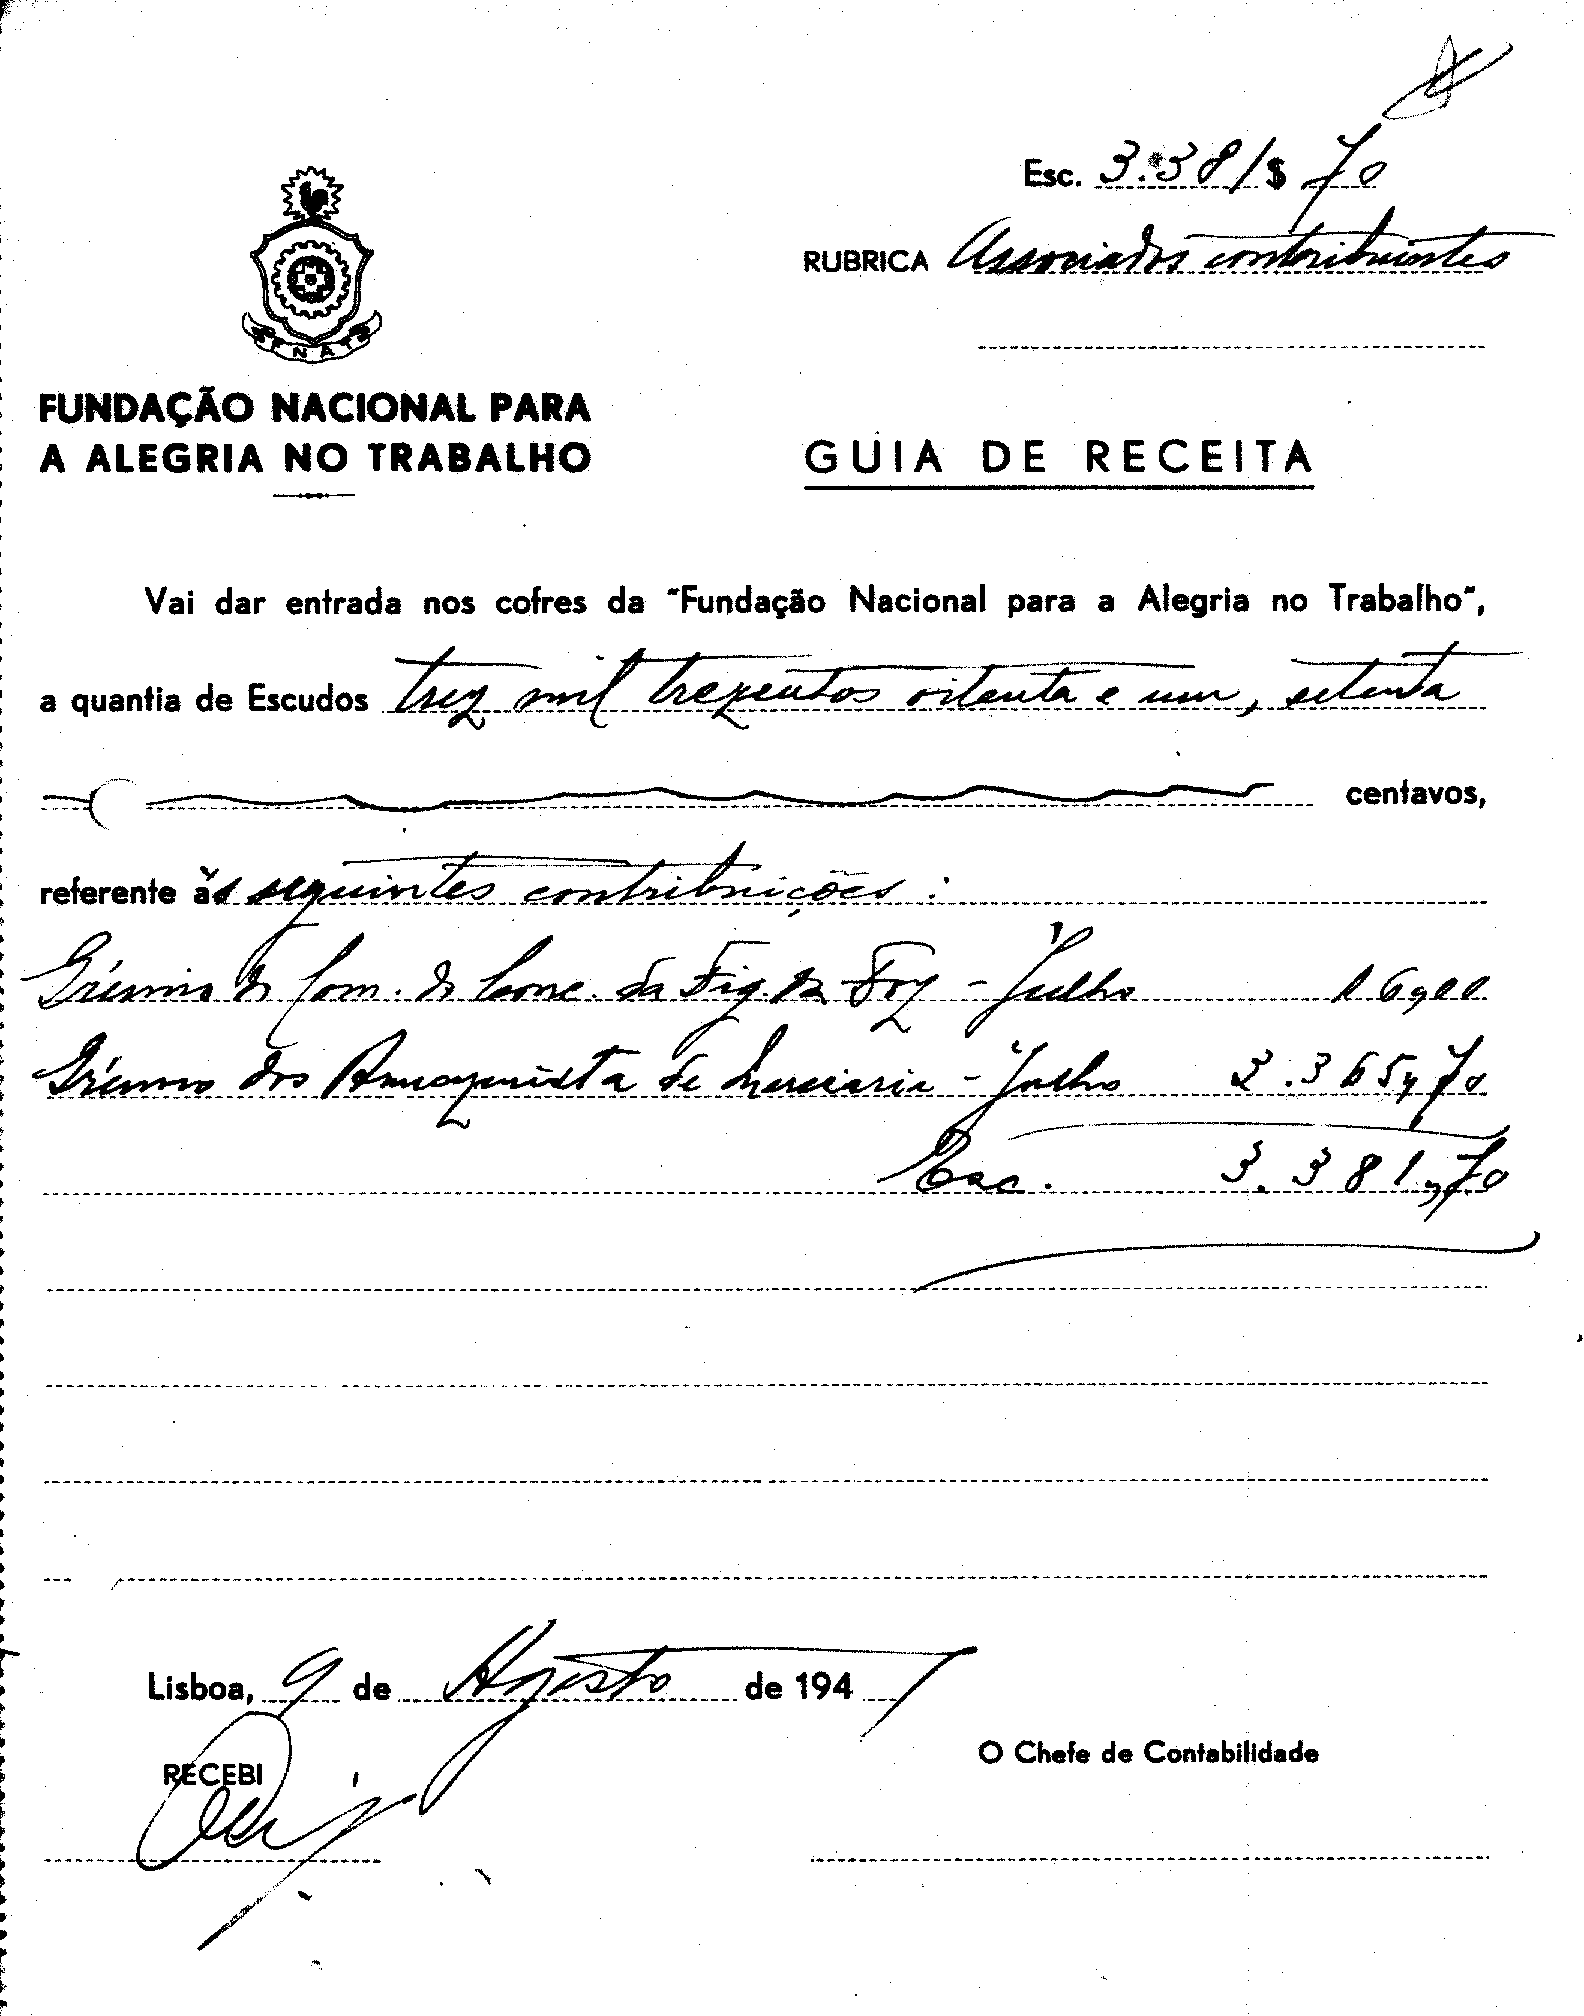 Esc. 3.381$70
RUBRICA Associados contribuintes
FNAT
FUNDAÇÃO NACIONAL PARA
A ALEGRIA NO TRABALHO
GUIA DE RECEITA
Vai dar entrada nos cofres da "Fundação Nacional para a Alegria no Trabalho",
a quantia de Escudos trez mil trezentos oitenta e um, setenta
centavos,
referente às seguintes contribuições:
Grémio do Com. do Conc. da Fig. da Foz - Julho 16,00
Grémio dos Armazenista de Mercearia - Julho 3.365,70
Esc. 3.381,70
Lisboa, 9 de Agosto de 1947
O Chefe de Contabilidade
RECEBI